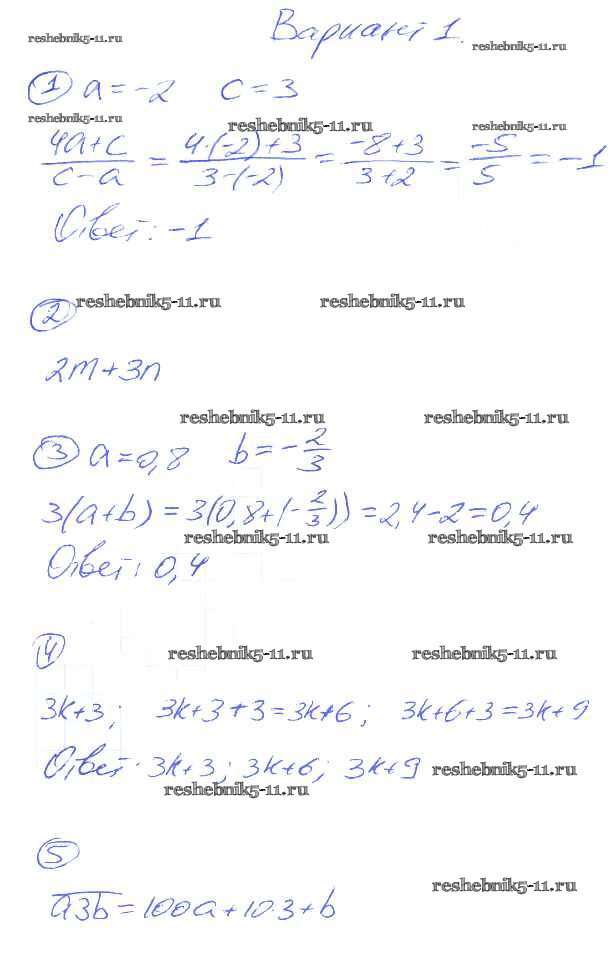 Вариант 1.
reshebnik5-11.ru reshebnik5-11.ru
1 a = -2 c = 3
reshebnik5-11.ru reshebnik5-11.ru reshebnik5-11.ru
(4a+c)/(c-a) = (4·(-2)+3)/(3-(-2)) = (-8+3)/(3+2) = (-5)/5 = -1
Ответ: -1
2 reshebnik5-11.ru reshebnik5-11.ru
2m+3n
reshebnik5-11.ru reshebnik5-11.ru
3 a=0,8 b=-2/3
3(a+b) = 3(0,8+(-2/3)) = 2,4-2=0,4
reshebnik5-11.ru reshebnik5-11.ru
Ответ: 0,4
4 reshebnik5-11.ru reshebnik5-11.ru
3k+3; 3k+3+3=3k+6; 3k+6+3=3k+9
Ответ: 3k+3; 3k+6; 3k+9 reshebnik5-11.ru
reshebnik5-11.ru
5
reshebnik5-11.ru
a3b = 100a+10·3+b